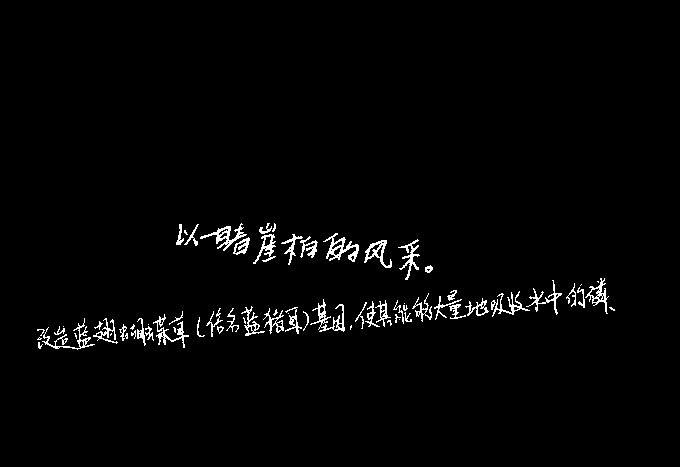 以一睹崖柏的风采。
改造蓝翅蝴蝶草(俗名蓝猪耳)基因,使其能够大量地吸收水中的磷、